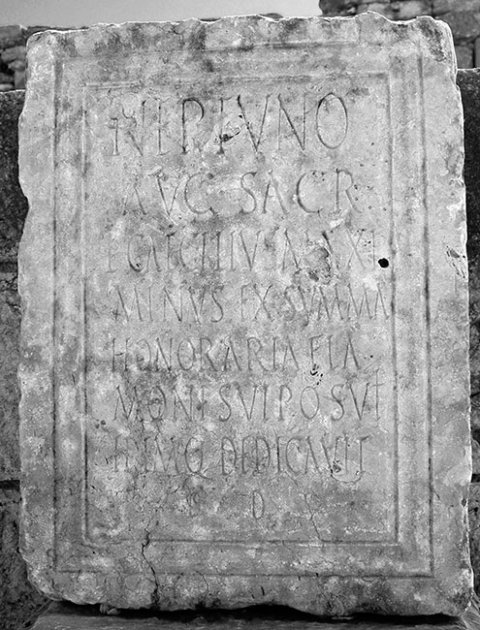 NEPTVNO
AVG SACR
L CAECILIVS MAXI
MINVS EX SVMMA
HONORARIA FLA
MONI SVI POSVIT
IDEMQ DEDICAVIT
D D